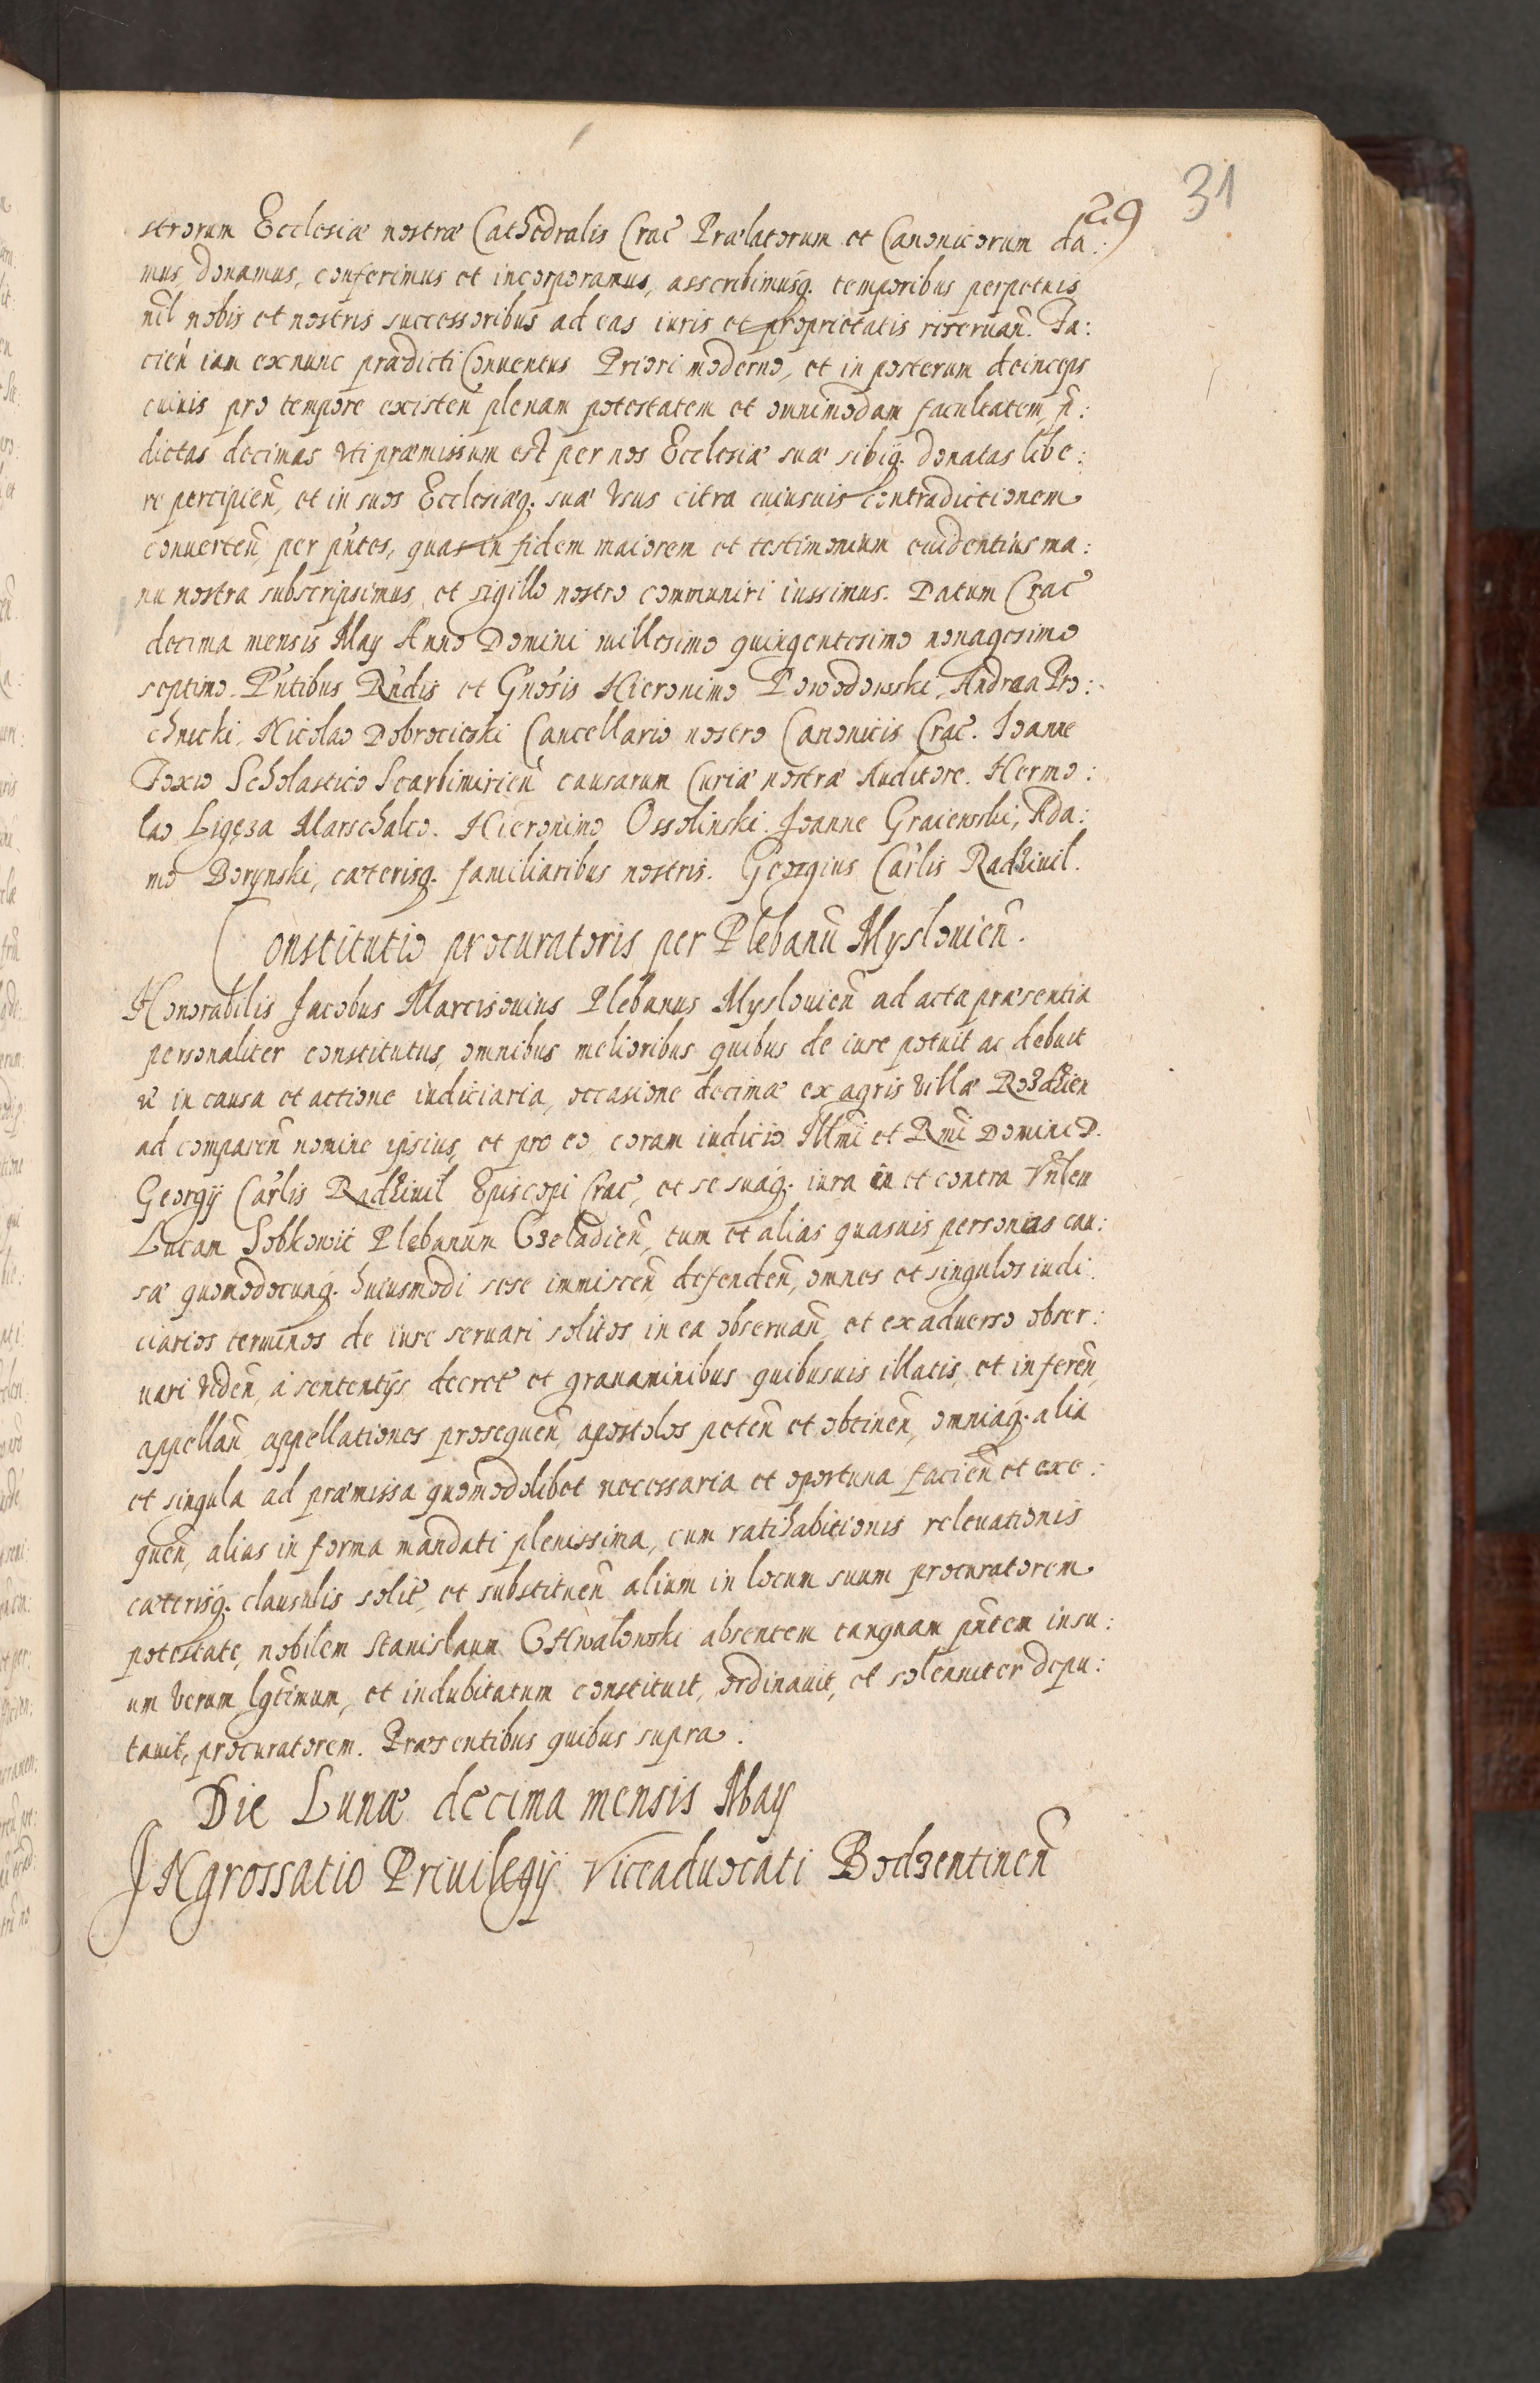 29
31
strorum Ecclesiæ nostræ Cathedralis Crac̃ Prælatorum et Canonicorum da:
mus, donamus, conferimus et incorporamus, asscribimusq̃. temporibus perpetuis
nil nobis et nostris successoribus ad eas iuris et proprietatis reseruañ. Fa:
cieñ iam ex nunc prædicti Conuentus Priori moderno, et in posterum deinceps
cuiuis pro tempore existeñ plenam potestatem et omnimodam facultatem, p̃:
dictas decimas vti præmissum est per nos Ecclesiæ suæ sibiq̃. donatas libe:
re percipieñ, et in suos Ecclesiæq̃. suæ vsus citra cuiusuis contradictionem
conuerteñ, per pñtes, quas in fidem maiorem et testimonium euidentius ma:
nu nostra subscripsimus, et sigillo nostro communiri iussimus. Datum Crac̃
decima mensis May Anno Domini millesimo quingentesimo nonagesimo
septimo. Pñtibus Rñdis et Gñosis Hieronimo Powodowski, Andrea Pro:
chnicki, Nicolao Dobrocieski Cancellario nostro Canonicis Crac̃. Ioanne
Foxio Scholastico Scarbimirieñ causarum Curiæ nostræ Auditore. Hermo:
lao Ligęza Marschalco. Hieronimo Ossolinski. Joanne Graiewski, Ada:
mo Borynski, cæterisq̃. familiaribus nostris. Georgius Car̃lis Radziuil.
Constitutio procuratoris per Plebanũ Mysłouień.
Honorabilis Jacobus Marcisouius Plebanus Mysłouieñ ad acta præsentia
personaliter constitutus, omnibus melioribus quibus de iure potuit ac debuit
et in causa et actione iudiciaria, occasione decimæ ex agris villæ Rozdzien
ad compareñ nomine ipsius, et pro eo coram iudicio Illmi et Rmi Domini D.
Georgij Car̃lis Radziuil Episcopi Crac̃, et se suaq̃. iura in et contra Vñlem
Lucam Sobkowic Plebanum Czeladieñ, tum et alias quasuis personas cau:
sæ quomodocunq̃. huiusmodi sese immisceñ, defendeñ, omnes et singulos iudi
ciarios terminos de iure seruari solitos in ea obseruañ, et ex aduerso obser:
uari videñ, a sententijs, decret̃ et grauaminibus quibusuis illatis, et infereñ,
appellañ, appellationes prosequeñ, apostolos peteñ et obtineñ, omniaq̃. alia
et singula ad præmissa quomodolibet necessaria et oportuna facieñ et exe:
queñ, alias in forma mandati plenissima, cum ratihabitionis relevationis
cæterisq̃. clausulis solit̃, et substitueñ alium in locum suum procuratorem
potestate, nobilem Stanislaum Chwalowski absentem tanquam pñtem in su:
um verum lgt̃imum, et indubitatum constituit, ordinauit, et solenniter depu:
tauit, procuratorem. Præsentibus quibus supra.
Die Lunæ decima mensis May
INgrossatio Priuilegij Viceaduocati Bodzentineñ